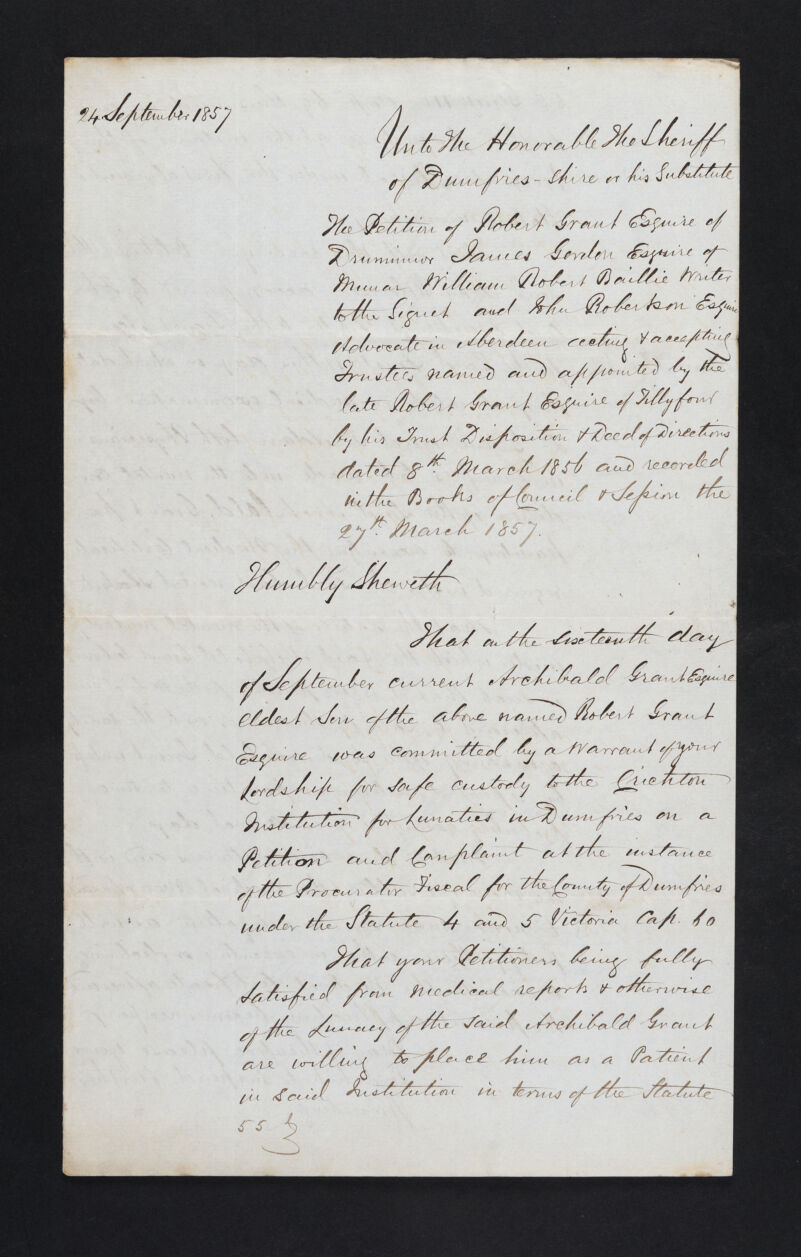 24 September 1857
Unto The Honorable The Sheriff
of Dumfries-shire or his Substitute
The Petition of Robert Grant Esquire of
Druminnor James Gordon Esquire of
Manar William Robert Baillie Writer
to the Signet and John Robertson Esquire
Advocate in Aberdeen acting & accepting
Trustees named and appointed by the
late Robert Grant Esquire of Tillyfour
by his Trust Disposition & Deed of Directions
dated 8th. March 1856 and recorded
in the Books of Council & Session the
27th. March 1857.
Humbly Sheweth
That on the sixteenth day
of September current Archibald Grant Esquire
eldest Son of the above named Robert Grant
Esquire was committed by a Warrant of your
Lordship for safe custody to the Crichton
Institution for Lunatics in Dumfries on a
Petition and Complaint at the instance
of the Procurator Fiscal for the County of Dumfries
under the Statute 4 and 5 Victoria Cap. 60
That your Petitioners being fully
satisfied from medical reports & otherwise
of the Lunacy of the said Archibald Grant
are willing to place him as a Patient
in said Institution in terms of the Statute
55